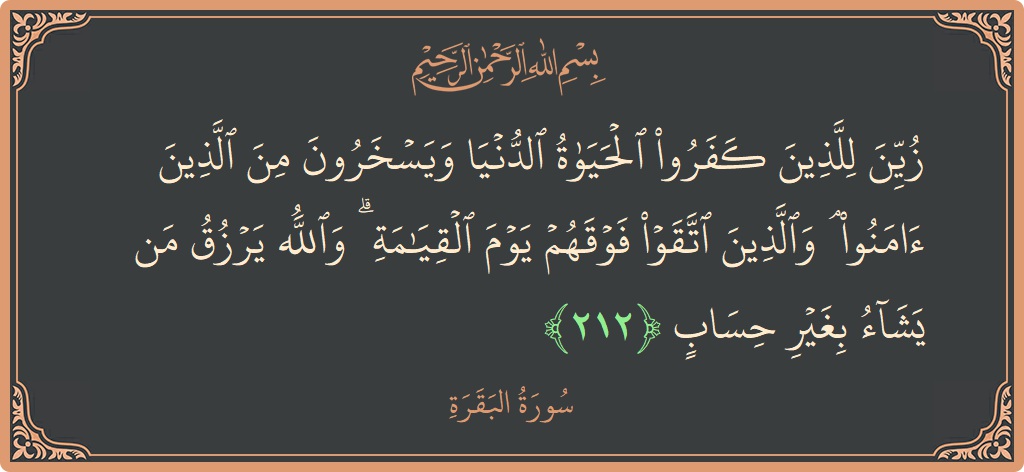 بِسْمِ اللَّهِ الرَّحْمَٰنِ الرَّحِيمِ
زُيِّنَ لِلَّذِينَ كَفَرُوا۟ ٱلْحَيَوٰةُ ٱلدُّنْيَا وَيَسْخَرُونَ مِنَ ٱلَّذِينَ
ءَامَنُوا۟ ۘ وَٱلَّذِينَ ٱتَّقَوْا۟ فَوْقَهُمْ يَوْمَ ٱلْقِيَـٰمَةِ ۗ وَٱللَّهُ يَرْزُقُ مَن
يَشَآءُ بِغَيْرِ حِسَابٍ ﴿٢١٢﴾
سُورَةُ البَقَرَةِ